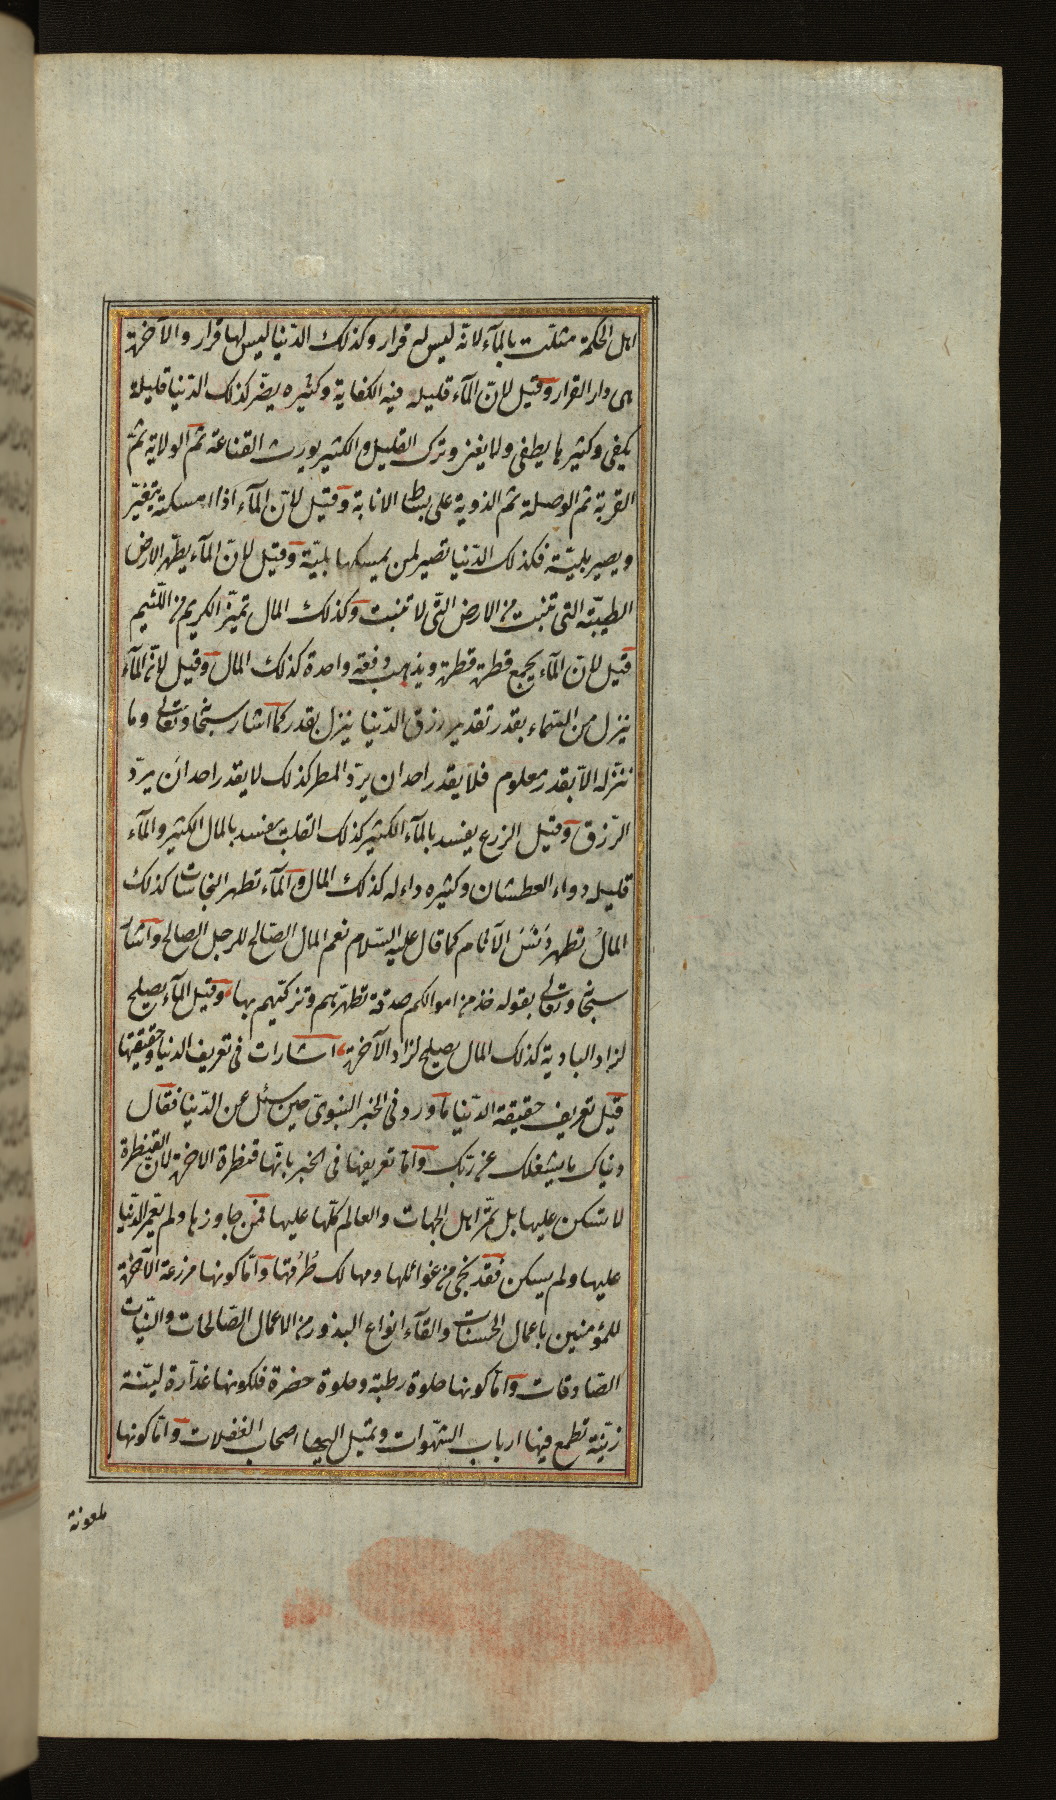 اهل الحكمة مثلت بالمآء لانه ليس له قرار وكذلك الدّنيا ليس لها قرار والآخرة
هى دار القرار وقيل لانّ المآء قليله فيه الكفاية وكثيره يضرّ كذلك الدّنيا قليله
يكفى وكثيرها يطفى ولا يغنى وترك القليل والكثير يورث القناعة ثمّ الولاية ثمّ
القربة ثم الوصلة ثم الذوية على بساط الانابة وقيل لانّ المآء اذا امسكته يتغيّر
ويصير بليّة فكذلك الدّنيا تصير لمن يمسكها بليّة وقيل لانّ المآء يطهّر الارض
الطيبّة التى تنبت من الارض التّى لا تنبت وكذلك المال تميّز الكريم من اللّئيم
قيل لانّ المآء يجمع قطرة قطرة ويذهب دفعة واحدة كذلك المال وقيل لانّ المآء
ينزل من السّماء بقدر تقدير رزق الدّنيا ينزل بقدر كما اشار سبحا وتعالى وما
ننزّله الاّ بقدر معلوم فلا يقدر احد ان يردّ المطر كذلك لا يقدر احد ان يردّ
الرّزق وقيل الزرع يفسد بالمآء الكثير كذلك القلب يفسد بالمال الكثير والمآء
قليله دواء العطشان وكثيره داء له كذلك المال والمآء تطهر النجاسات كذلك
المالُ تطهر دَنَسَ الآثام كما قال عليه السّلام نعم المال الصّالح للرجل الصالح واشار
سبحا وتعالى بقوله خذ من اموالكم صدقة تطهّرهم وتزكيّهم بها وقيل المآء يصلح
لزاد البادية كذلك المال يصلح لزاد الآخرة اشارات فى تعريف الدنيا وحقيقتها
قيل تعريف حقيقة الدّنيا ما ورد فى الخبر النبوىّ حين سئل عن الدّنيا فقال
دنياك ما يشغلك عن ربّك وامّا تعريفها فى الخبر بانّها قنطرة الاخرة لانّ القنطرة
لا تسكن عليها بل تمرّ اهل الجهات والعالم كلّها عليها فمن جاوزها ولم يعمّر الدّنيا
عليها ولم يسكن فقد نجى من غوائلها ومهالك طُرُقها وامّا كونها مزرعة الآخرة
للمؤمنين باعمال الحسنات والقآء انواع البذور من الاعمال الصّالحات والنّيات
الصّادقات وامّا كونها حلوة رطبة وحلوة خضرة فلكونها غدّارة ليّنة
زيّنة تطمع فيها ارباب الشّهوات وتميل اليها اصحاب الغفلات وامّا كونها
ملعونة